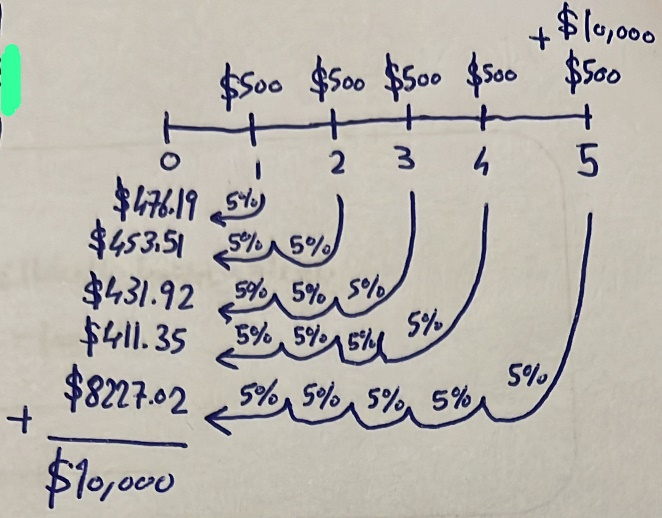 + $10,000
$500 $500 $500 $500 $500
0 1 2 3 4 5
$476.19 5%
$453.51 5% 5%
$431.92 5% 5% 5%
$411.35 5% 5% 5% 5%
$8227.02 5% 5% 5% 5% 5%
+
$10,000